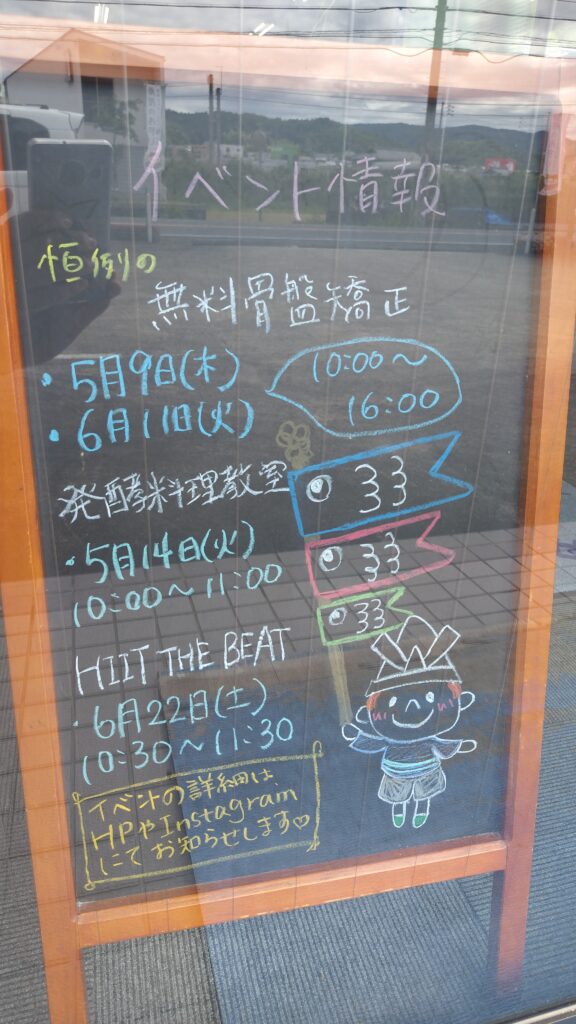 イベント情報
恒例の
無料骨盤矯正
・5月9日(木)
・6月11日(火)
10:00～
16:00
発酵料理教室
・5月14日(火)
10:00～11:00
HIIT THE BEAT
・6月22日(土)
10:30～11:30
イベントの詳細は、
HPやInstagram
にてお知らせします♡